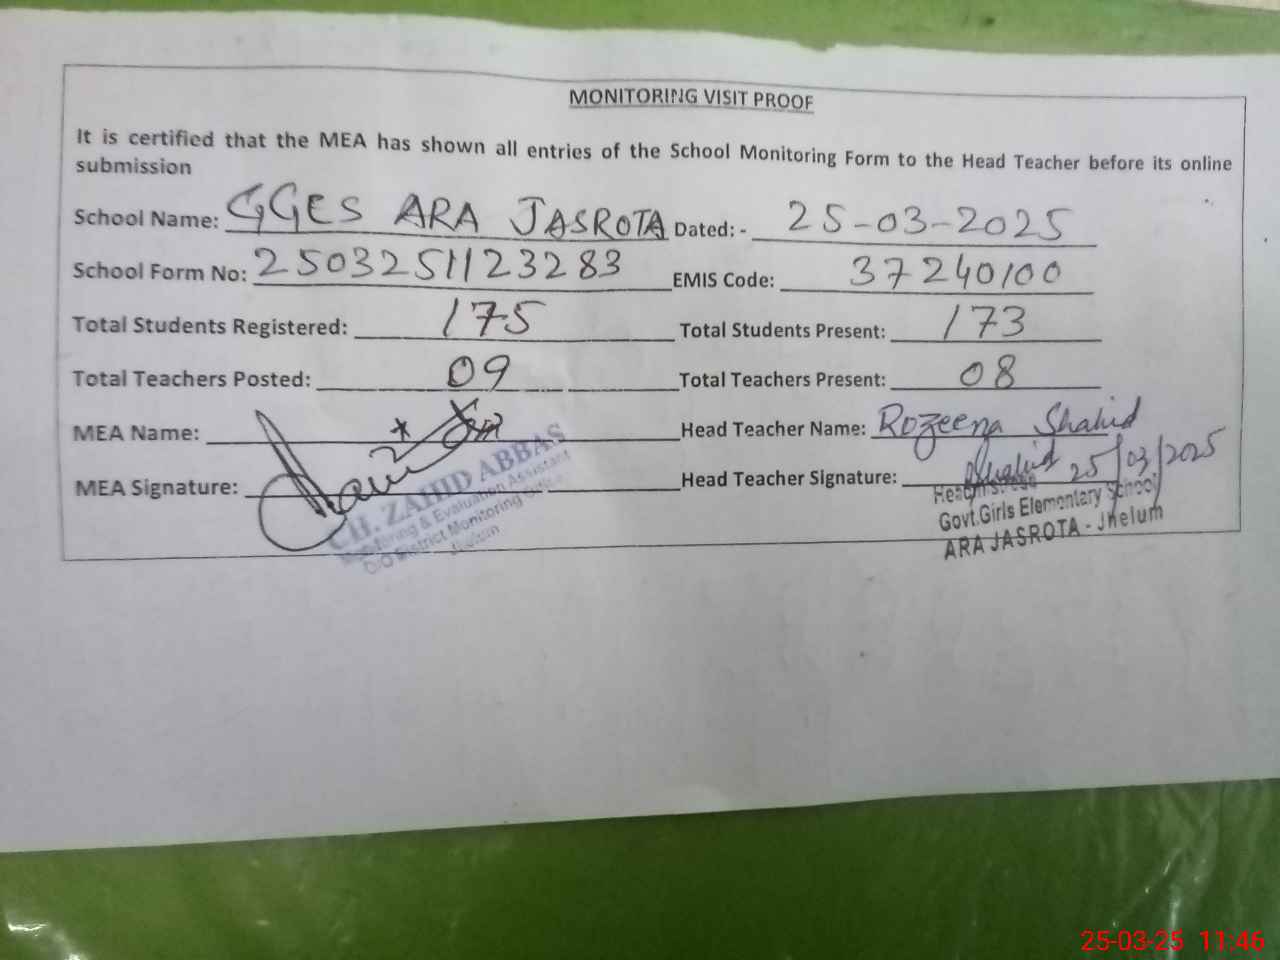 MONITORING VISIT PROOF
It is certified that the MEA has shown all entries of the School Monitoring Form to the Head Teacher before its online
submission
School Name: GGES ARA JASROTA Dated: - 25-03-2025
School Form No: 2503251123283 EMIS Code: 37240100
Total Students Registered: 175 Total Students Present: 173
Total Teachers Posted: 09 Total Teachers Present: 08
MEA Name: Head Teacher Name: Rozeena Shahid
MEA Signature: Head Teacher Signature: Shahid 25/03/2025
CH. ZAHID ABBAS
Monitoring & Evaluation Assistant
O/O District Monitoring Office
Jhelum
Govt.Girls Elementary School
ARA JASROTA - Jhelum
25-03-25 11:46